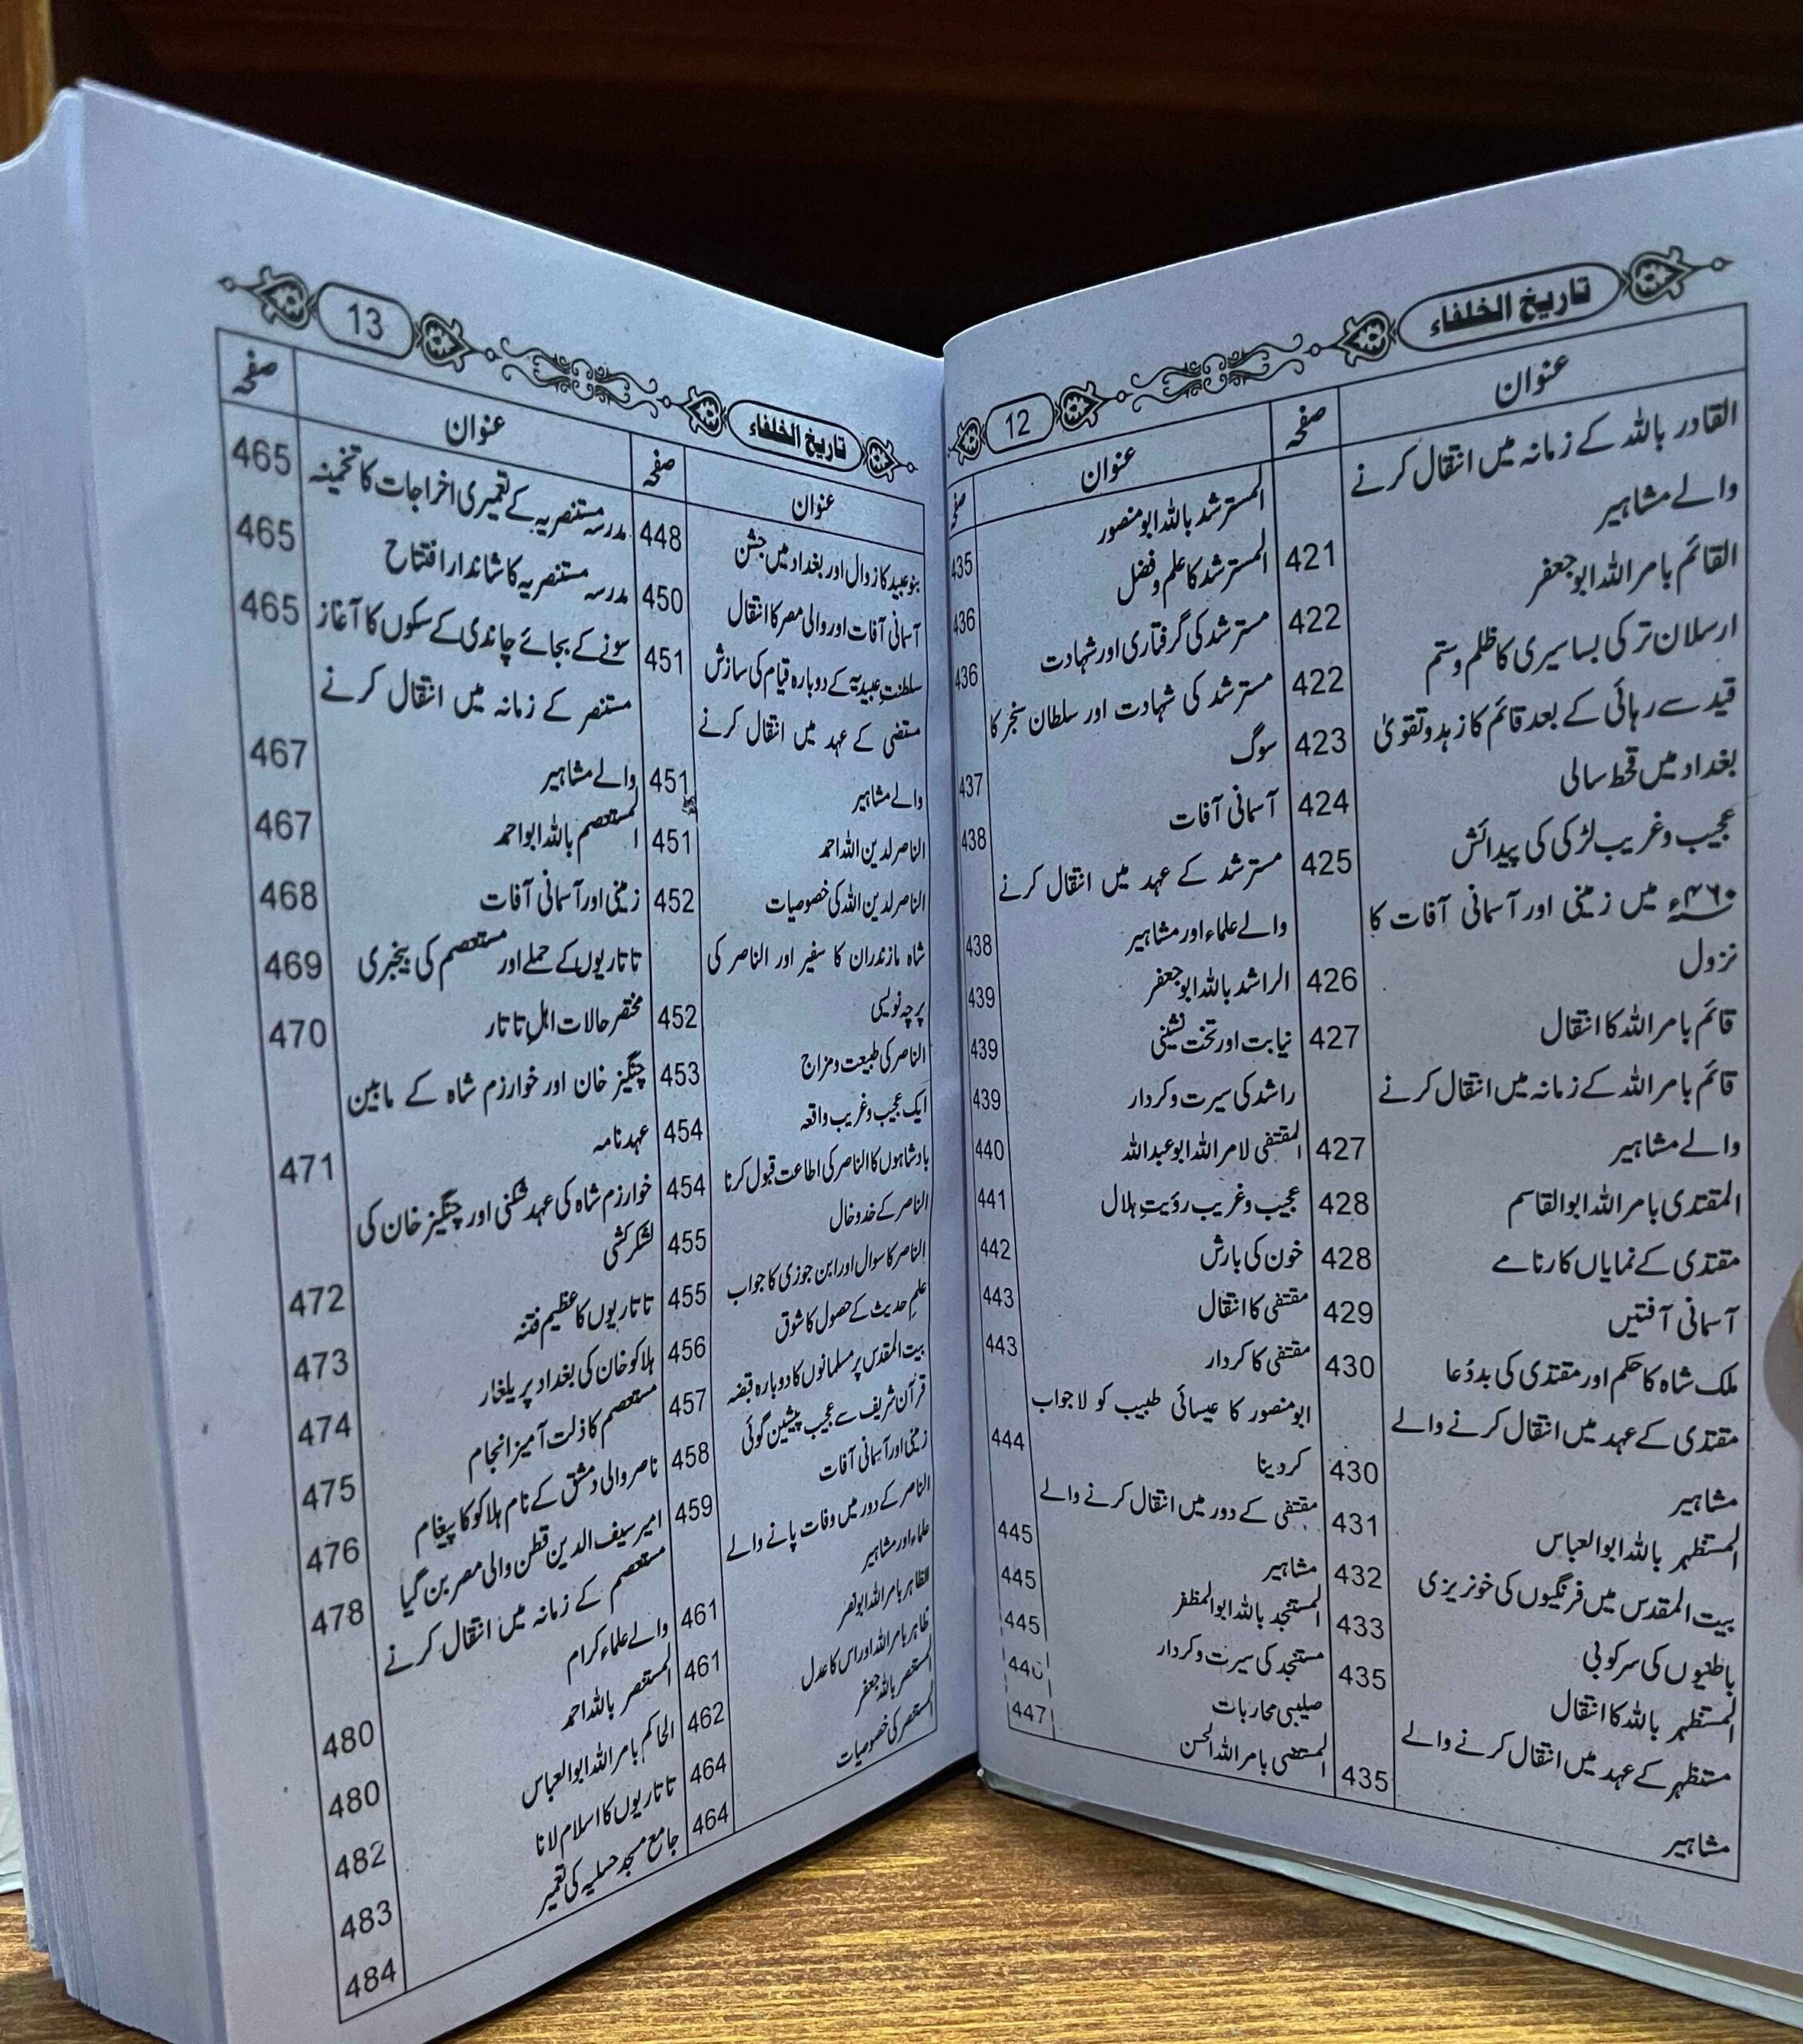 تاریخ الخلفاء
12
عنوان
صفحہ
القادر باللہ کے زمانہ میں انتقال کرنے
والے مشاہیر
421
القائم بامر اللہ ابوجعفر
422
ارسلان ترکی بساسیری کا ظلم وستم
422
قید سے رہائی کے بعد قائم کا زہد وتقویٰ
423
بغداد میں قحط سالی
424
عجیب وغریب لڑکی کی پیدائش
425
۴۶۰ء میں زمینی اور آسمانی آفات کا
نزول
426
قائم بامر اللہ کا انتقال
427
قائم بامر اللہ کے زمانہ میں انتقال کرنے
والے مشاہیر
427
المقتدی بامر اللہ ابوالقاسم
428
مقتدی کے نمایاں کارنامے
428
آسمانی آفتیں
429
ملک شاہ کا حکم اور مقتدی کی بددُعا
430
مقتدی کے عہد میں انتقال کرنے والے
مشاہیر
430
المستظہر باللہ ابوالعباس
431
بیت المقدس میں فرنگیوں کی خونریزی
432
باطنیوں کی سرکوبی
433
المستظہر باللہ کا انتقال
435
مستظہر کے عہد میں انتقال کرنے والے
مشاہیر
435
عنوان
صفحہ
المسترشد باللہ ابومنصور
435
المسترشد کا علم وفضل
436
مسترشد کی گرفتاری اور شہادت
436
مسترشد کی شہادت اور سلطان سنجر کا
سوگ
437
آسمانی آفات
438
مسترشد کے عہد میں انتقال کرنے
والے علماء اور مشاہیر
438
الراشد باللہ ابوجعفر
439
نیابت اور تخت نشینی
439
راشد کی سیرت وکردار
439
المقتفی لامر اللہ ابوعبداللہ
440
عجیب وغریب رؤیتِ ہلال
441
خون کی بارش
442
مقتفی کا انتقال
443
مقتفی کا کردار
443
ابومنصور کا عیسائی طبیب کو لاجواب
کردینا
444
مقتفی کے دور میں انتقال کرنے والے
مشاہیر
445
المستنجد باللہ ابوالمظفر
445
مستنجد کی سیرت وکردار
445
صلیبی محاربات
446
المستضی بامر اللہ الحسن
447
تاریخ الخلفاء
13
عنوان
صفحہ
بنو عبید کا زوال اور بغداد میں جشن
448
آسمانی آفات اور والی مصر کا انتقال
450
سلطنتِ عبیدیہ کے دوبارہ قیام کی سازش
451
مستضی کے عہد میں انتقال کرنے
والے مشاہیر
451
الناصر لدین اللہ احمد
451
الناصر لدین اللہ کی خصوصیات
452
شاہ مازندران کا سفیر اور الناصر کی
پرچہ نویسی
452
الناصر کی طبیعت ومزاج
453
ایک عجیب وغریب واقعہ
454
بادشاہوں کا الناصر کی اطاعت قبول کرنا
454
الناصر کے خدوخال
455
الناصر کا سوال اور ابن جوزی کا جواب
455
علمِ حدیث کے حصول کا شوق
456
بیت المقدس پر مسلمانوں کا دوبارہ قبضہ
457
قرآن شریف سے عجیب پیشین گوئی
458
زمینی اور آسمانی آفات
459
الناصر کے دور میں وفات پانے والے
علماء اور مشاہیر
461
الظاہر بامر اللہ ابونصر
461
ظاہر بامر اللہ اور اس کا عدل
462
المستنصر باللہ جعفر
464
المستنصر کی خصوصیات
464
عنوان
صفحہ
مدرسہ مستنصریہ کے تعمیری اخراجات کا تخمینہ
465
مدرسہ مستنصریہ کا شاندار افتتاح
465
سونے کے بجائے چاندی کے سکوں کا آغاز
465
مستنصر کے زمانہ میں انتقال کرنے
والے مشاہیر
467
المستعصم باللہ ابواحمد
467
زمینی اور آسمانی آفات
468
تاتاریوں کے حملے اور مستعصم کی بیخبری
469
مختصر حالات اہلِ تاتار
470
چنگیز خان اور خوارزم شاہ کے مابین
عہدنامہ
471
خوارزم شاہ کی عہد شکنی اور چنگیز خان کی
لشکر کشی
472
تاتاریوں کا عظیم فتنہ
473
ہلاکو خان کی بغداد پر یلغار
474
مستعصم کا ذلت آمیز انجام
475
ناصر والی دمشق کے نام ہلاکو کا پیغام
476
امیر سیف الدین قطن والی مصر بن گیا
478
مستعصم کے زمانہ میں انتقال کرنے
والے علماء کرام
480
المستنصر باللہ احمد
480
الحاکم بامر اللہ ابوالعباس
482
تاتاریوں کا اسلام لانا
483
جامع مسجد کی تعمیر
484